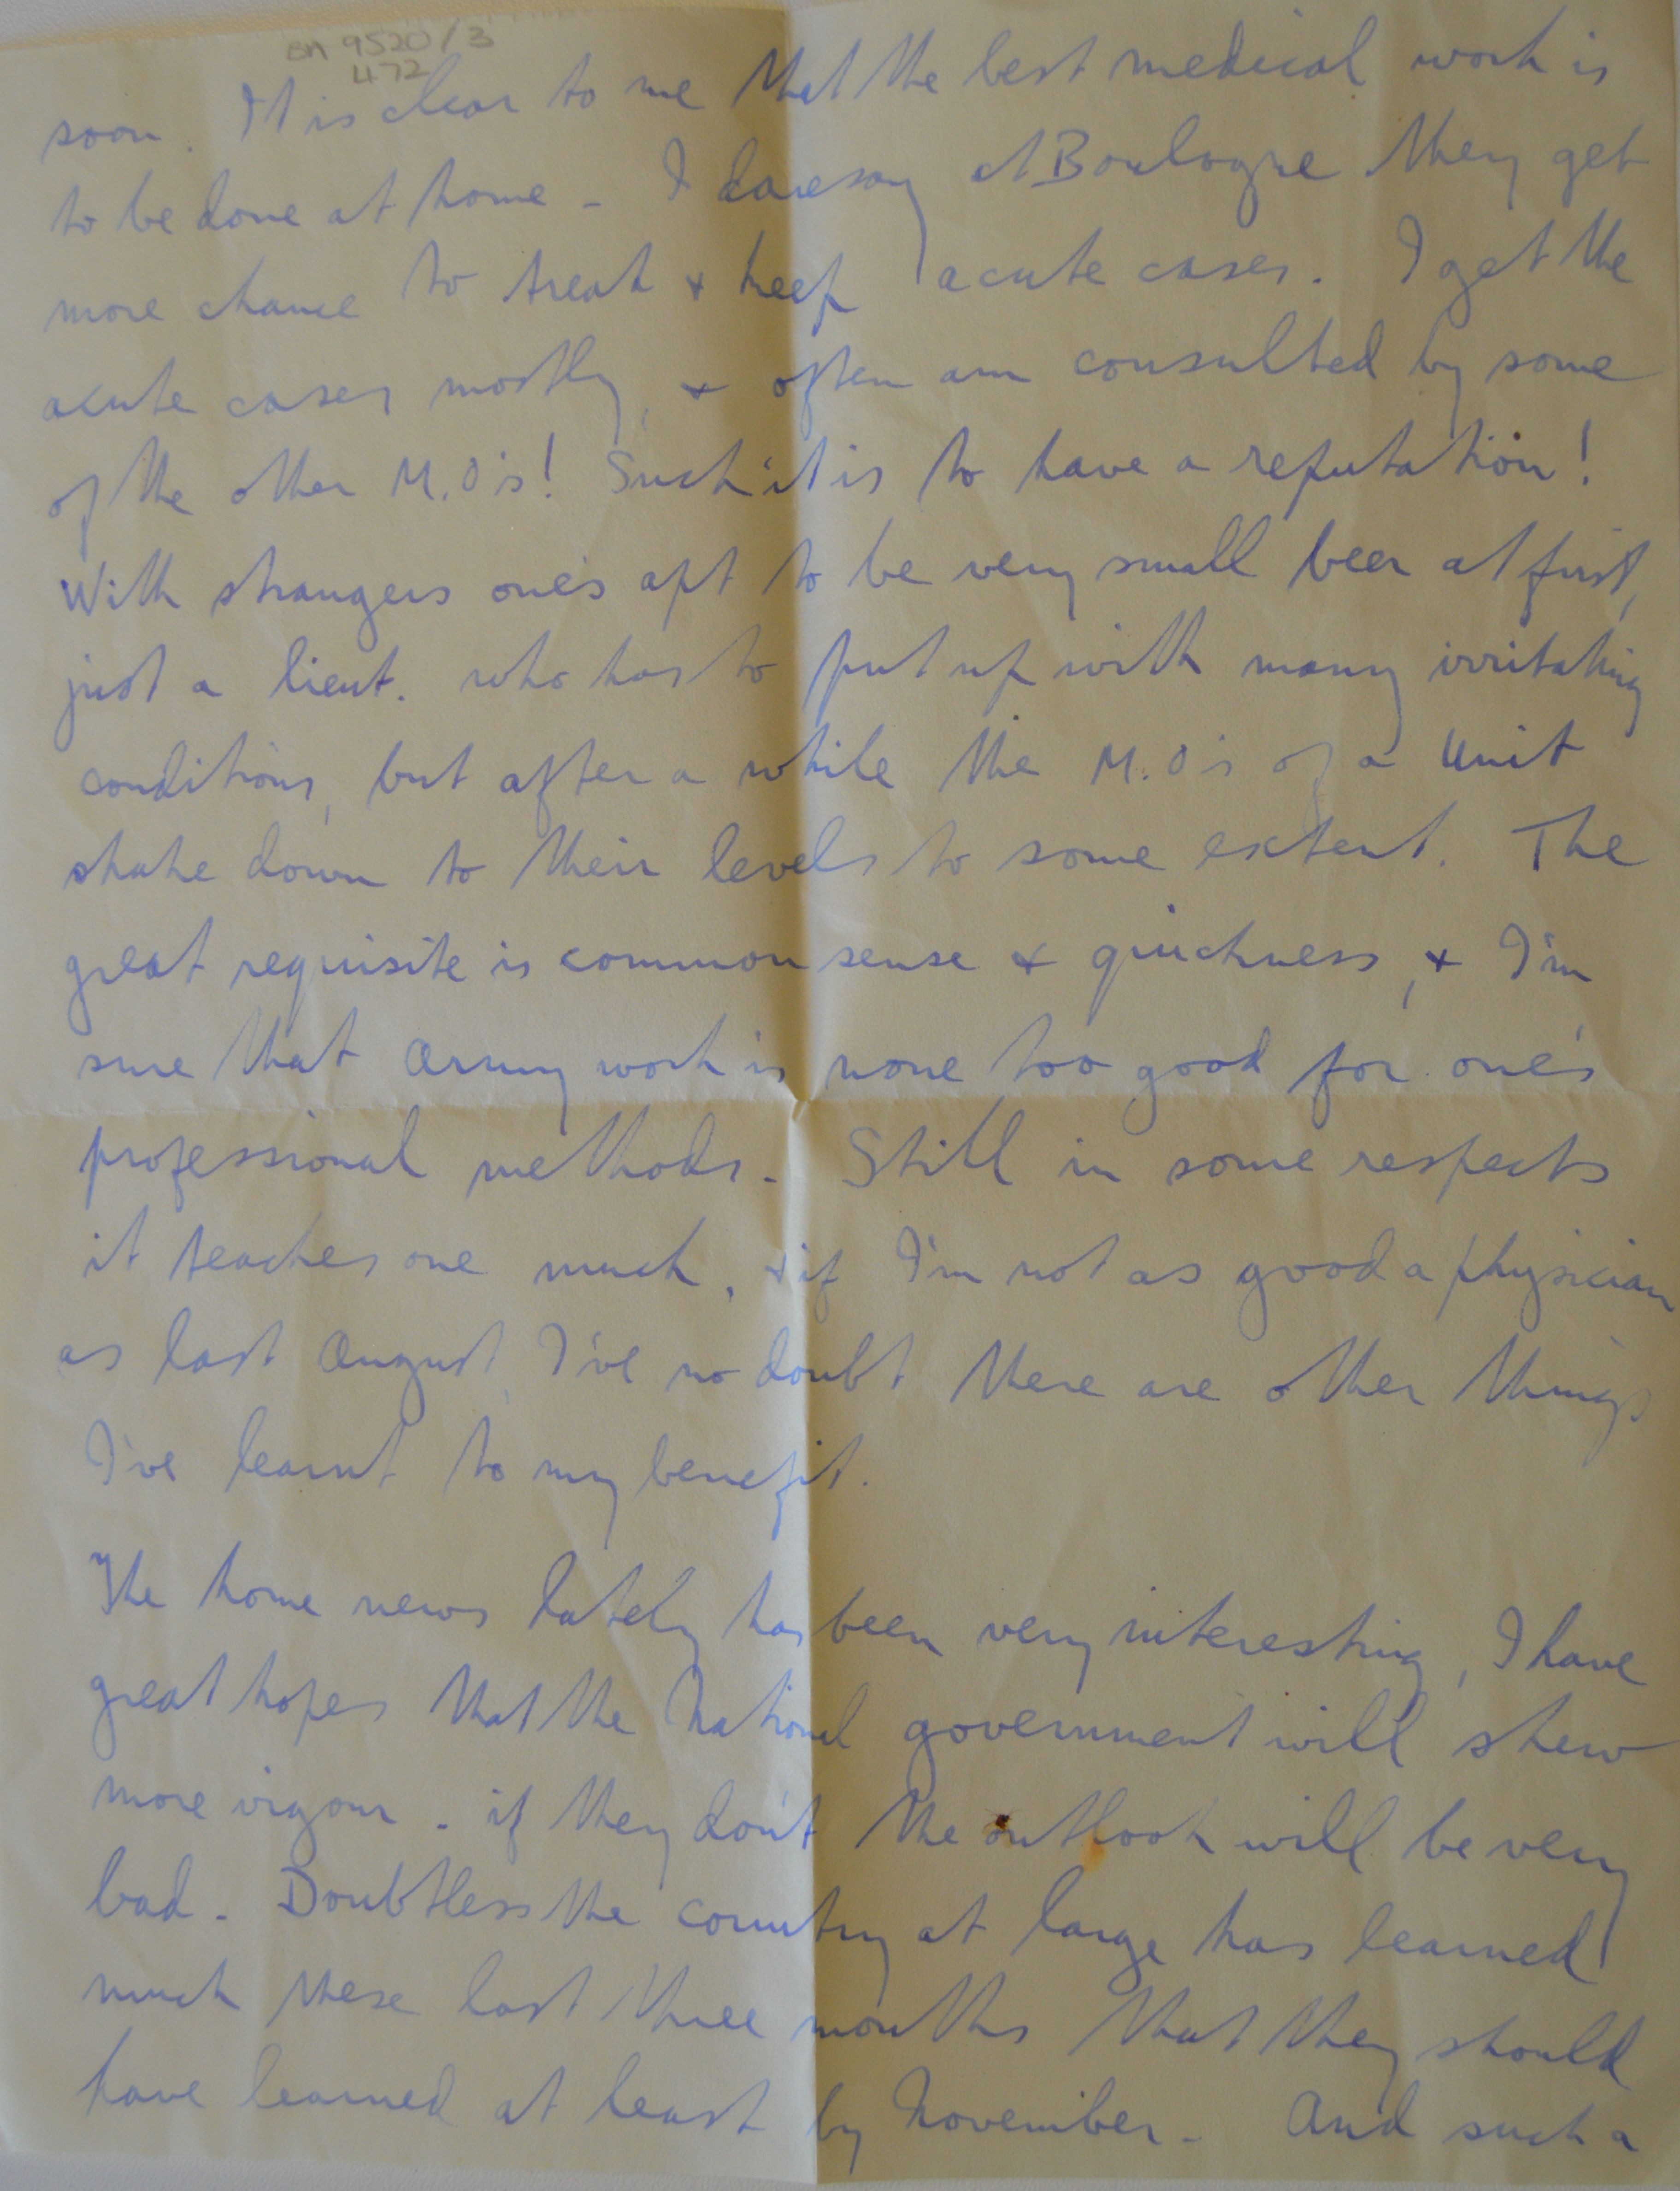 BM 9520/3
472
soon. It is clear to me that the best medical work is
to be done at home - I daresay at Boulogne they get
more chance to treat & keep acute cases. I get the
acute cases mostly, & often am consulted by some
of the other M.O's! Such it is to have a reputation!
With strangers one's apt to be very small beer at first,
just a lieut. who has to put up with many irritating
conditions, but after a while the M.O's of a Unit
shake down to their levels to some extent. The
great requisite is common sense & quickness, & I'm
sure that Army work is none too good for one's
professional methods. Still in some respects
it teaches one much, & if I'm not as good a physician
as last August, I've no doubt there are other things
I've learnt to my benefit.
The home news lately has been very interesting, I have
great hopes that the National government will shew
more vigour - if they don't the outlook will be very
bad. Doubtless the country at large has learned
much these last three months that they should
have learned at least by November. And such a